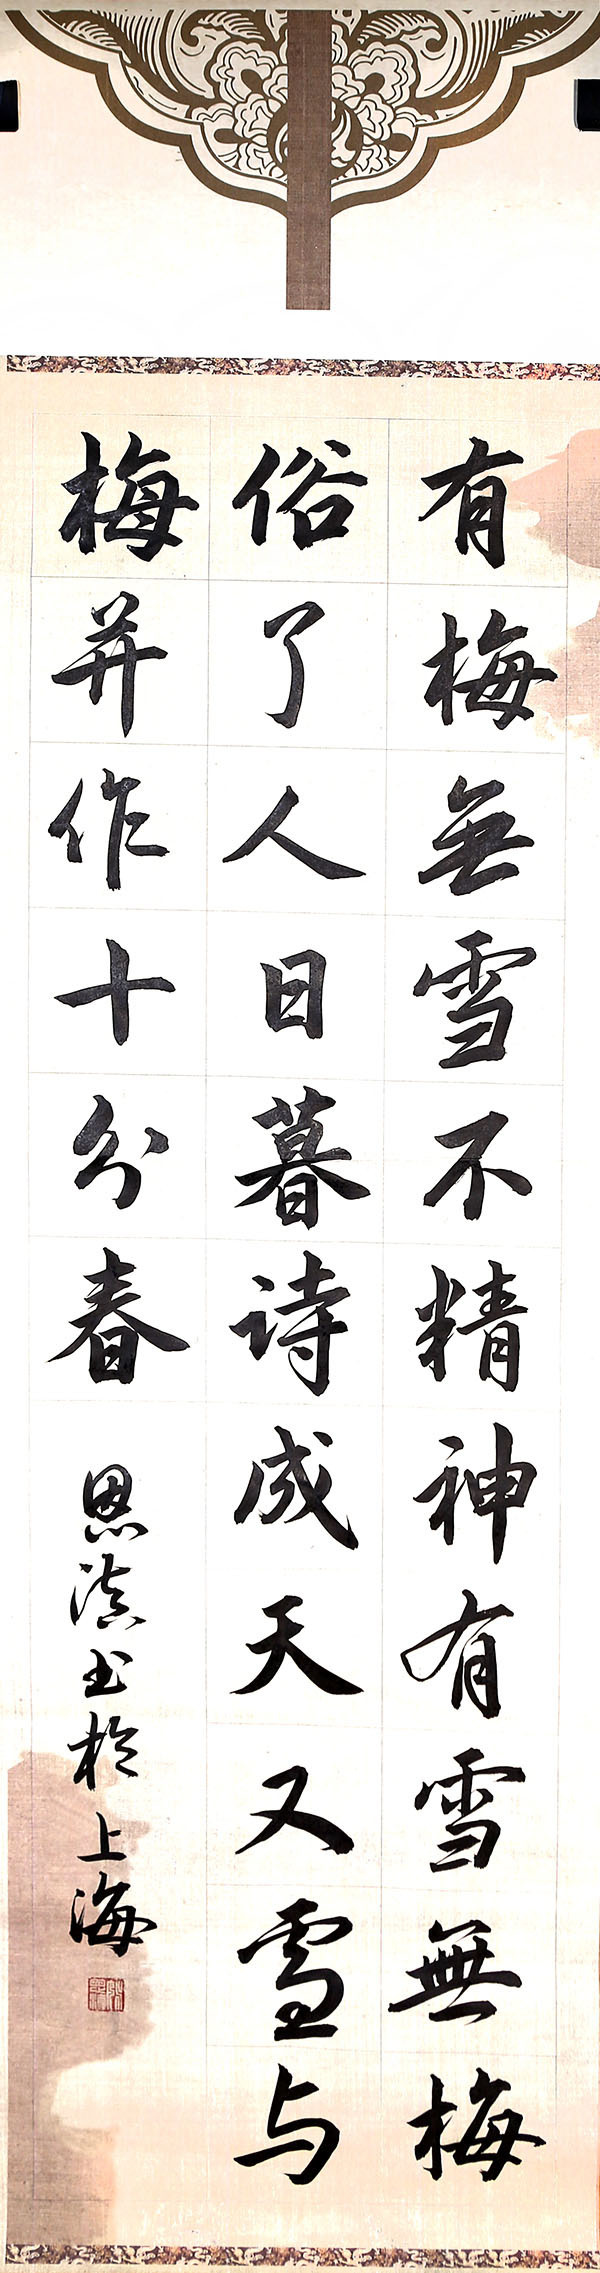 有梅無雪不精神有雪無梅
俗了人日暮诗成天又雪与
梅并作十分春
恩滇书於上海